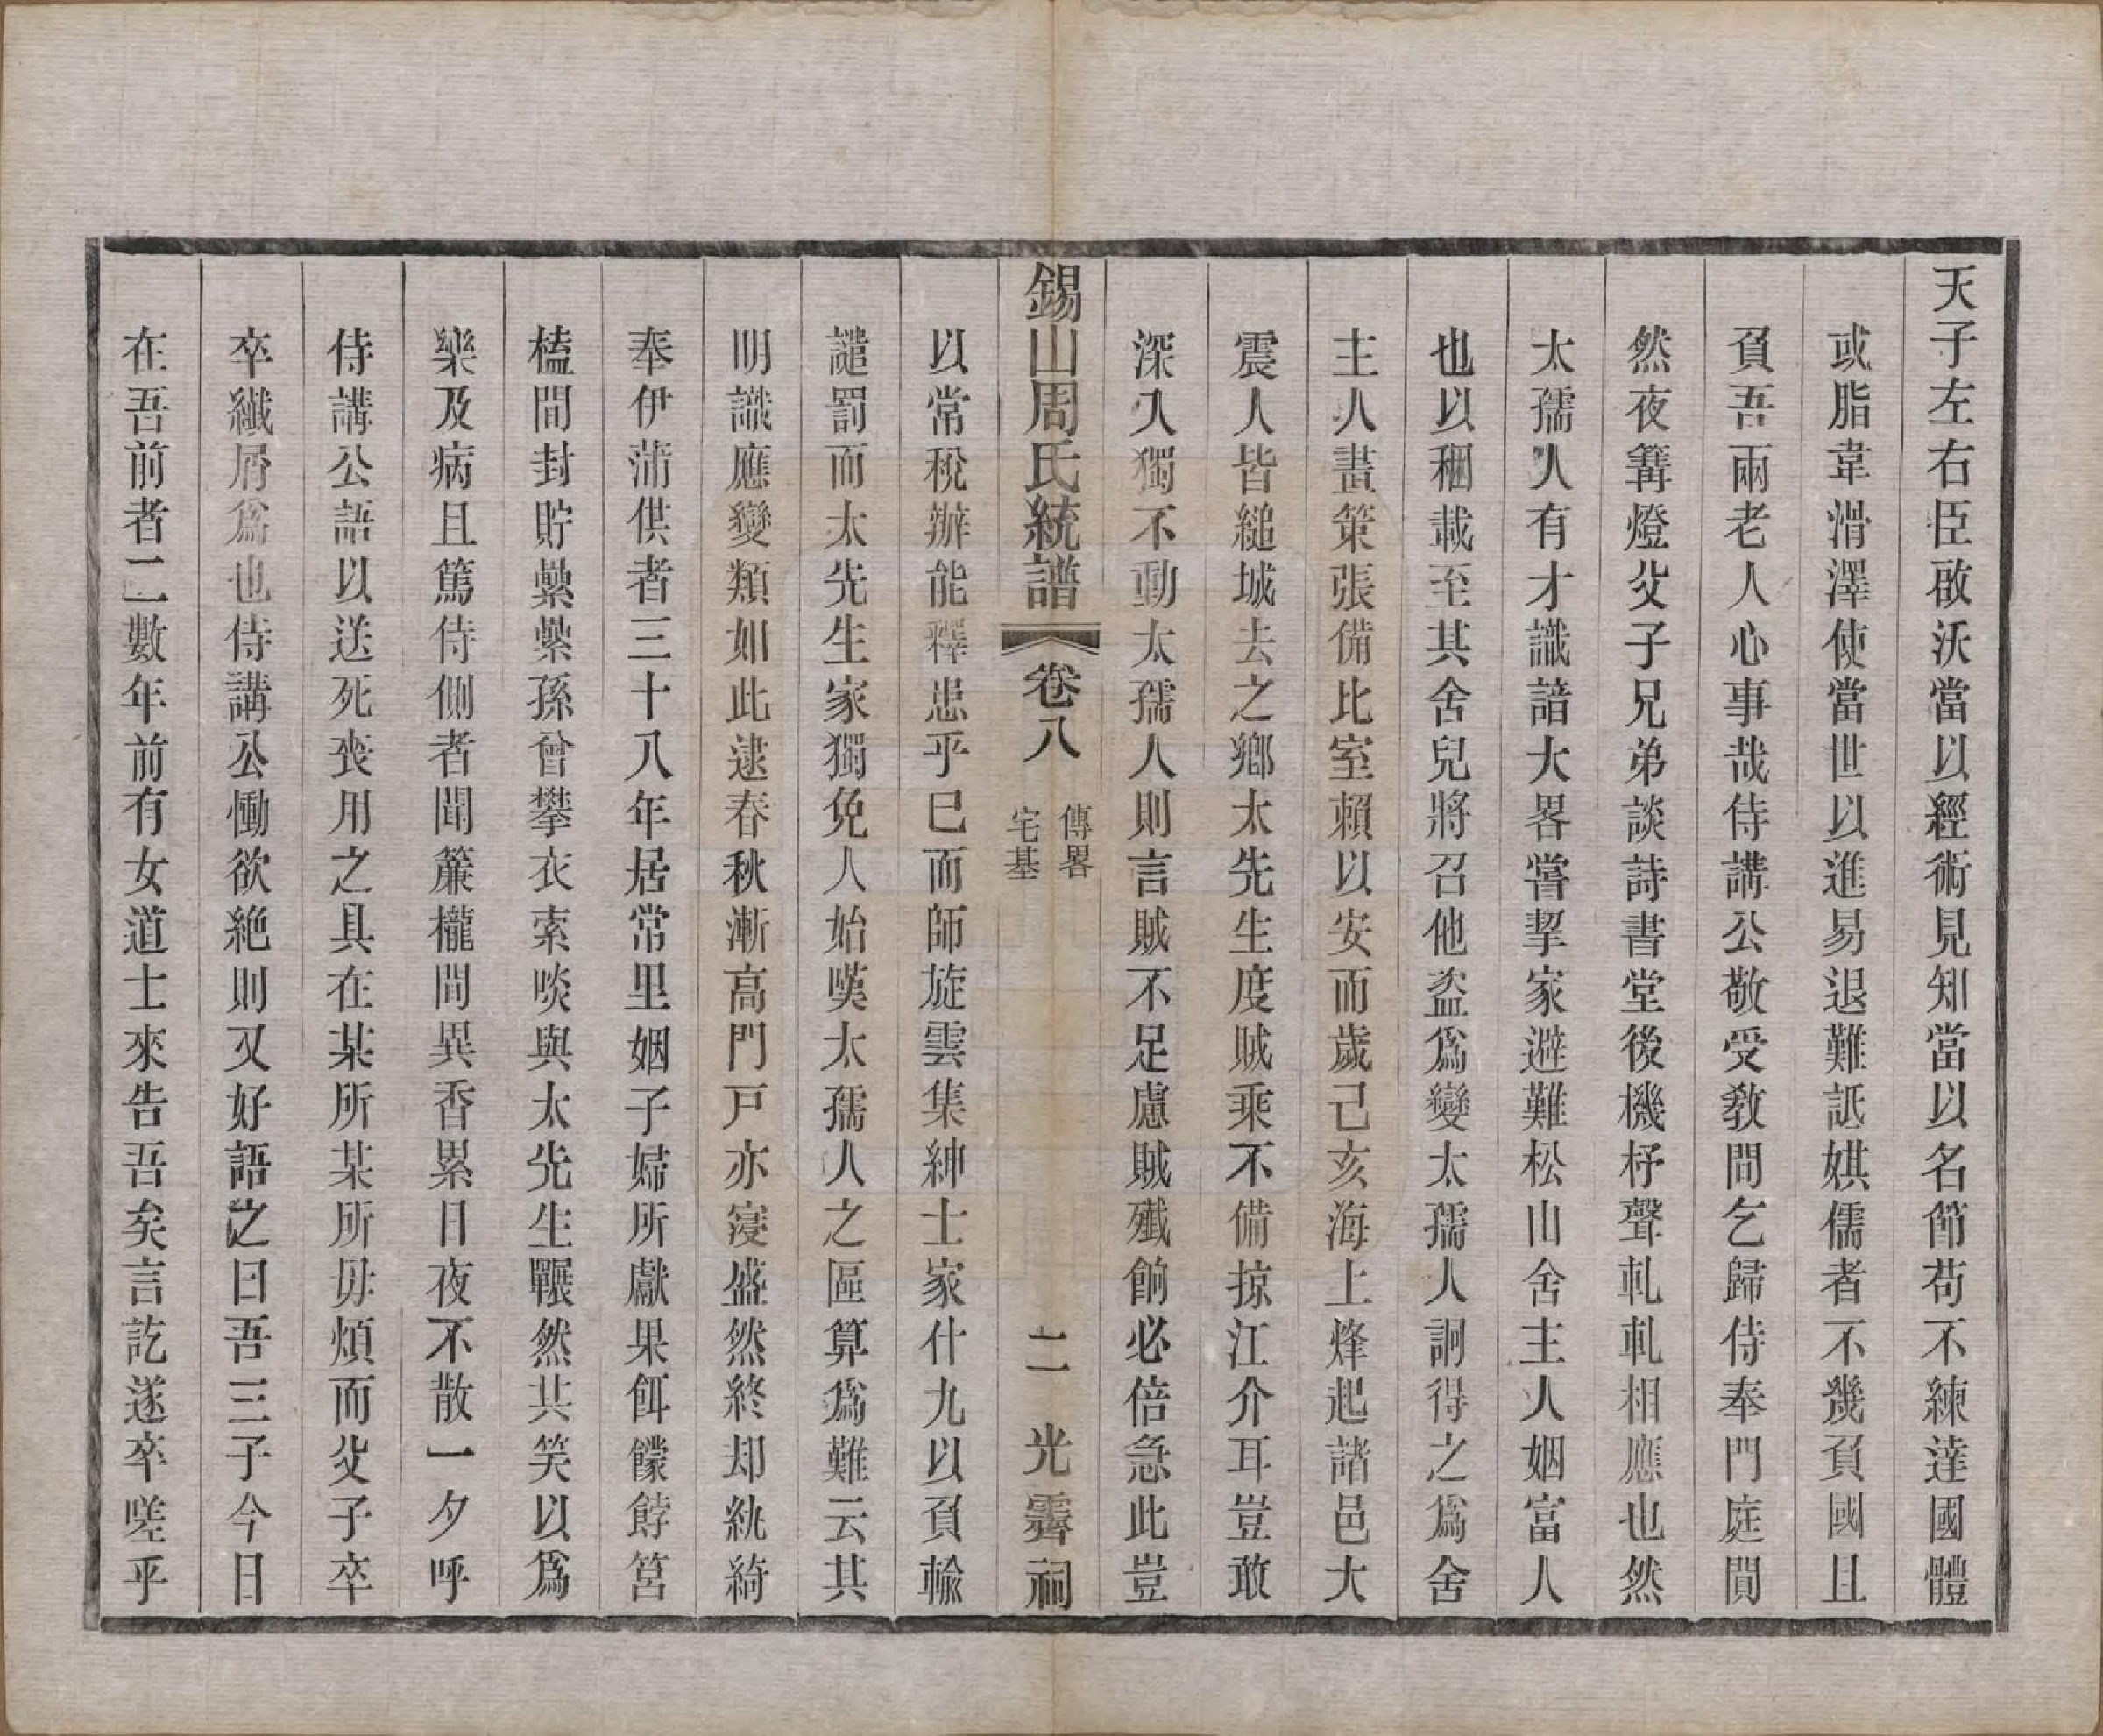 天子左右臣啟沃當以經術見知當以名節苟不練達國體
或脂韋滑澤使當世以進易退難詆娸儒者不幾負國且
負吾兩老人心事哉侍講公敬受教問乞歸侍奉門庭閒
然夜篝燈父子兄弟談詩書堂後機杼聲軋軋相應也然
太孺人有才識諳大畧嘗挈家避難松山舍主人姻富人
也以稛載至其舍兒將召他盜為變太孺人詗得之為舍
主人畫策張備比室賴以安而歲己亥海上烽起諸邑大
震人皆縋城去之鄉太先生度賊乘不備掠江介耳豈敢
深入獨不動太孺人則言賊不足慮賊殱餉必倍急此豈
錫山周氏統譜 卷八 傳畧 宅基 二 光霽祠
以常稅辦能釋患乎巳而師旋雲集紳士家什九以負輸
譴罰而太先生家獨免人始嘆太孺人之區算為難云其
明識應變類如此逮春秋漸高門戸亦寖盛然終却紈綺
奉伊蒲供者三十八年居常里姻子婦所獻果餌饛餑筥
榼間封貯纍纍孫曾攀衣索啖與太先生囅然共笑以為
樂及病且篤侍側者聞簾櫳間異香累日夜不散一夕呼
侍講公語以送死喪用之具在某所某所毋煩而父子卒
卒纖屑為也侍講公慟欲絶則又好語之曰吾三子今日
在吾前者二數年前有女道士來告吾矣言訖遂卒嗟乎